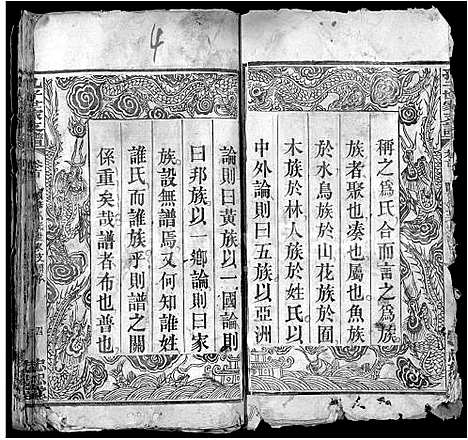 稱之爲氏合而言之爲族
族者聚也湊也屬也魚族
於水鳥族於山花族於囿
木族於林人族於姓氏以
中外論則曰五族以亞洲
論則曰黃族以一國論則
曰邦族以一鄉論則曰家
族設無譜焉又何知誰姓
誰氏而誰族乎則譜之關
係重矣哉譜者布也普也
4
四